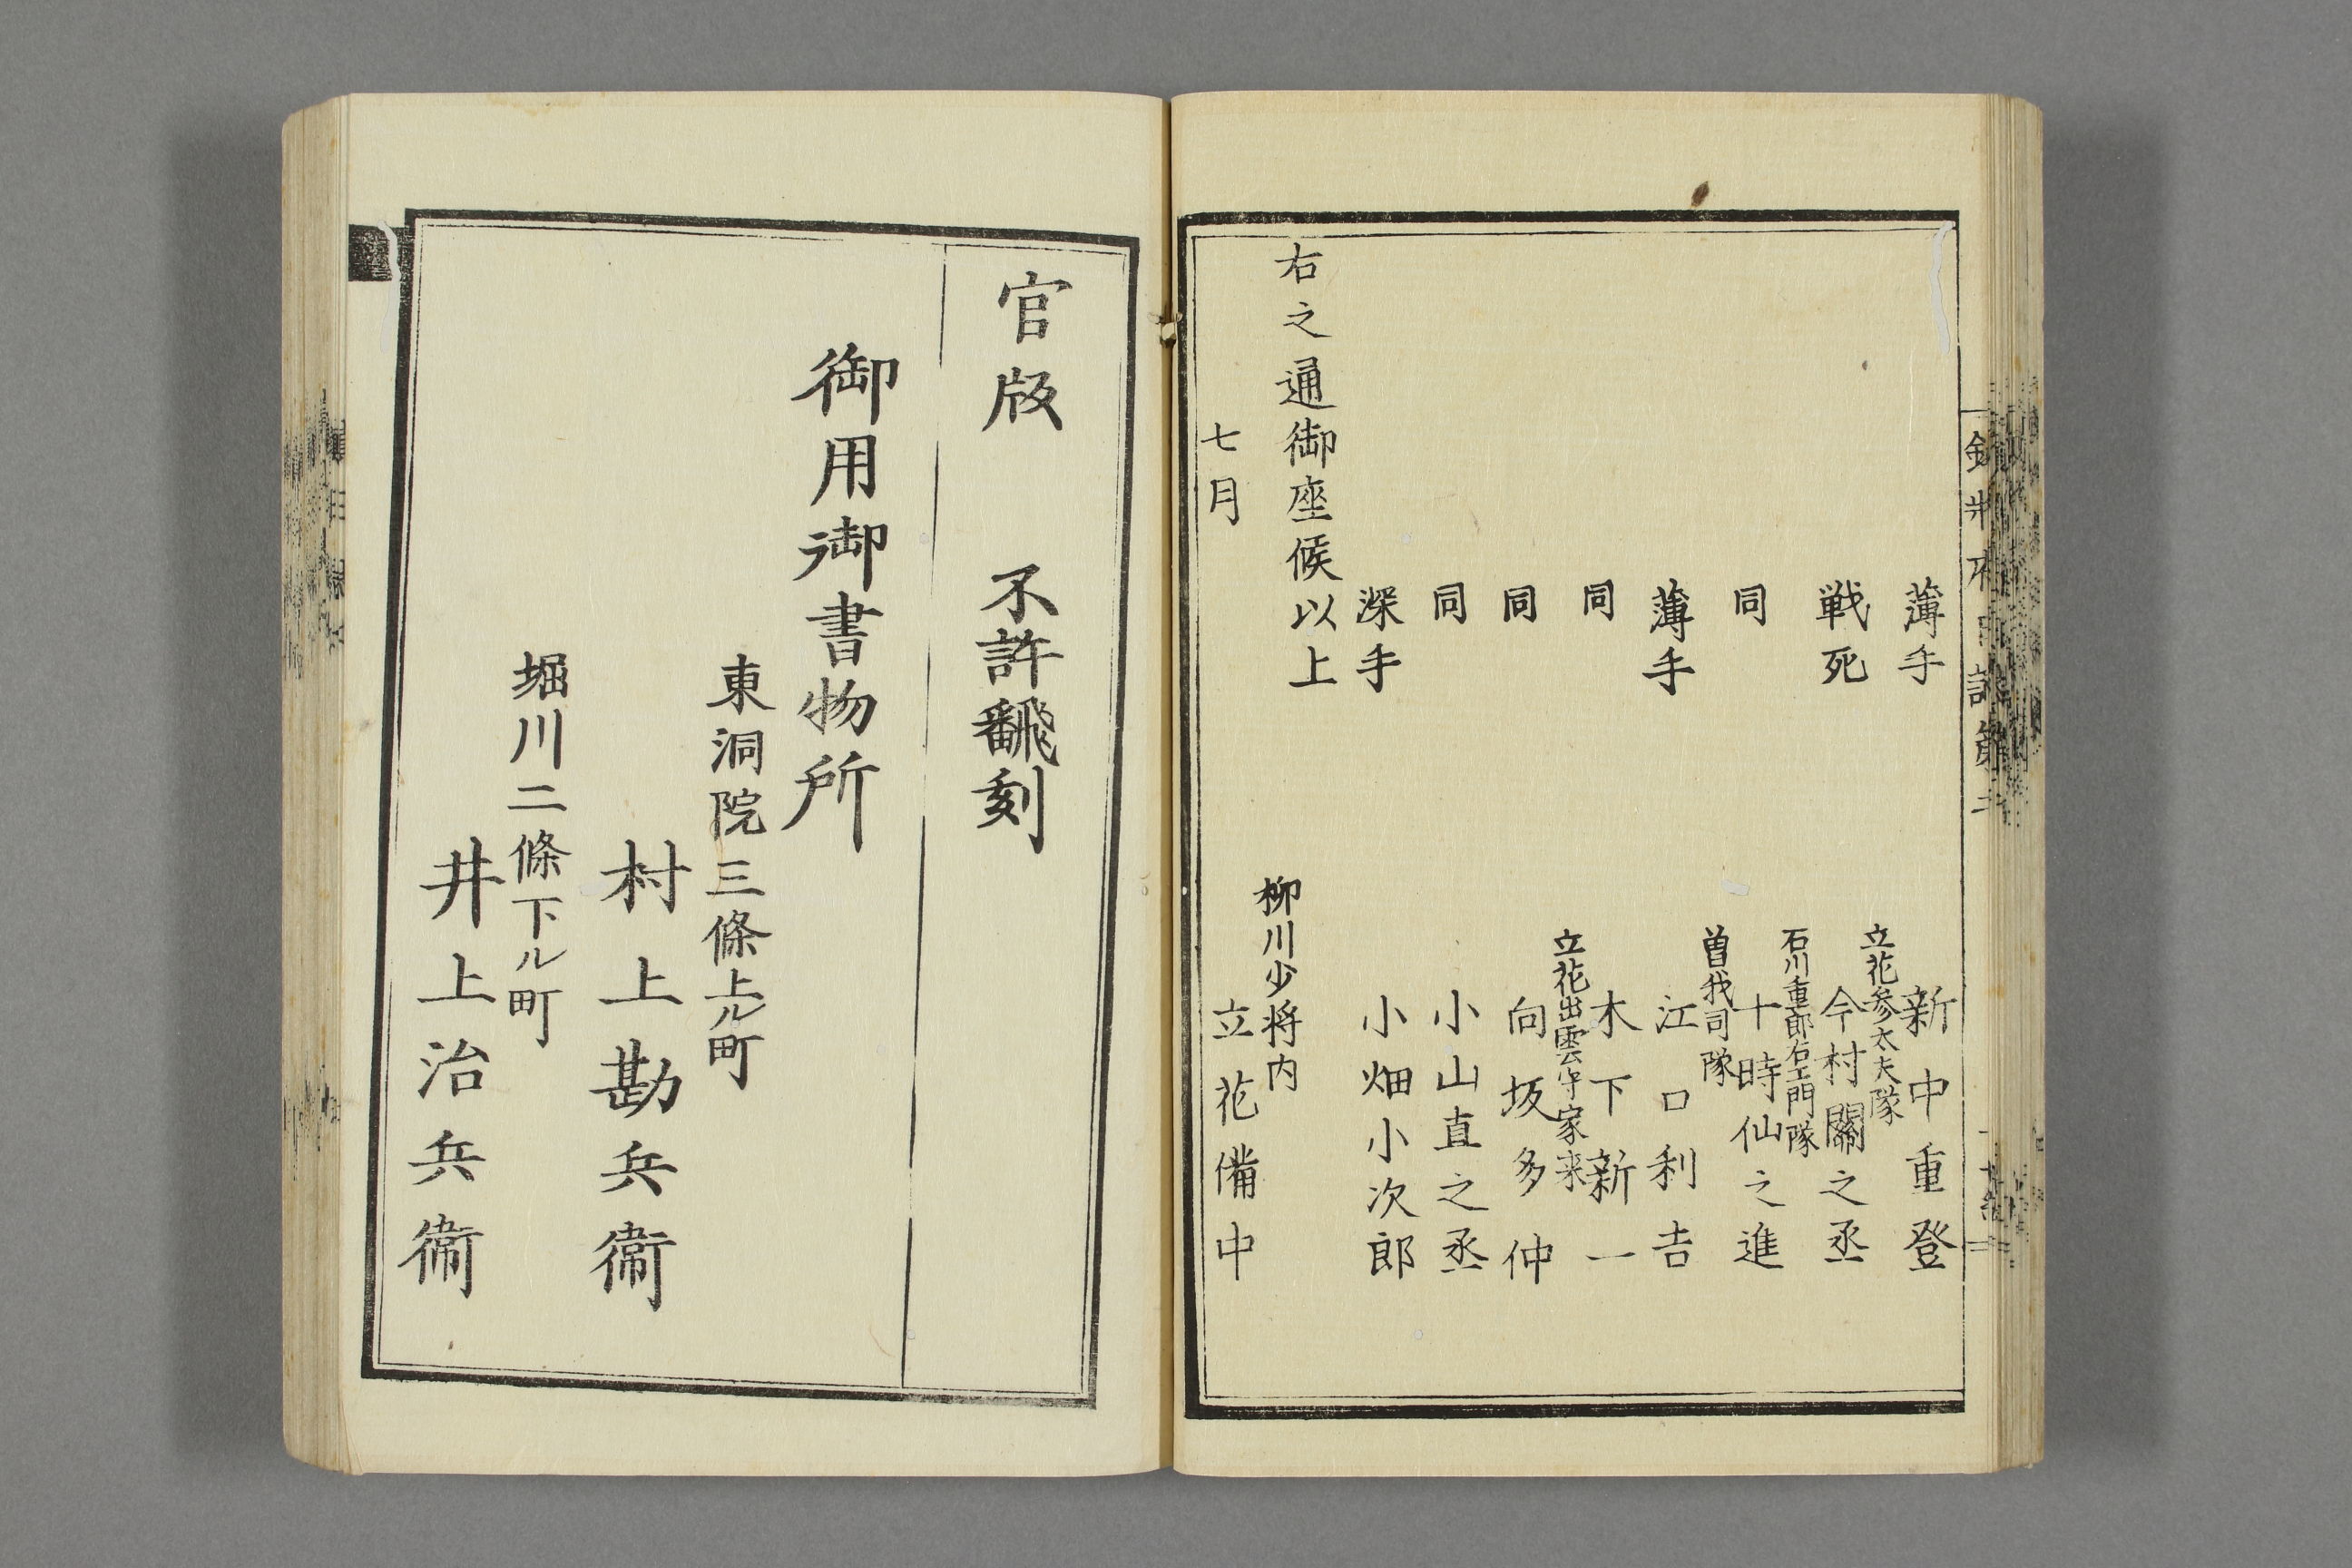 薄手　新中重登
立花参太夫隊
戦死　今村關之丞
石川重郎右エ門隊
同　十時仙之進
曽我司隊
薄手　江口利吉
同　木下新一
立花出雲守家来
同　向坂多仲
同　小山直之丞
深手　小畑小次郎
右之通御座候以上
柳川少将内
七月　立花備中
官版　不許飜刻
御用御書物所
東洞院三條上ル町
村上勘兵衞
堀川二條下ル町
井上治兵衞